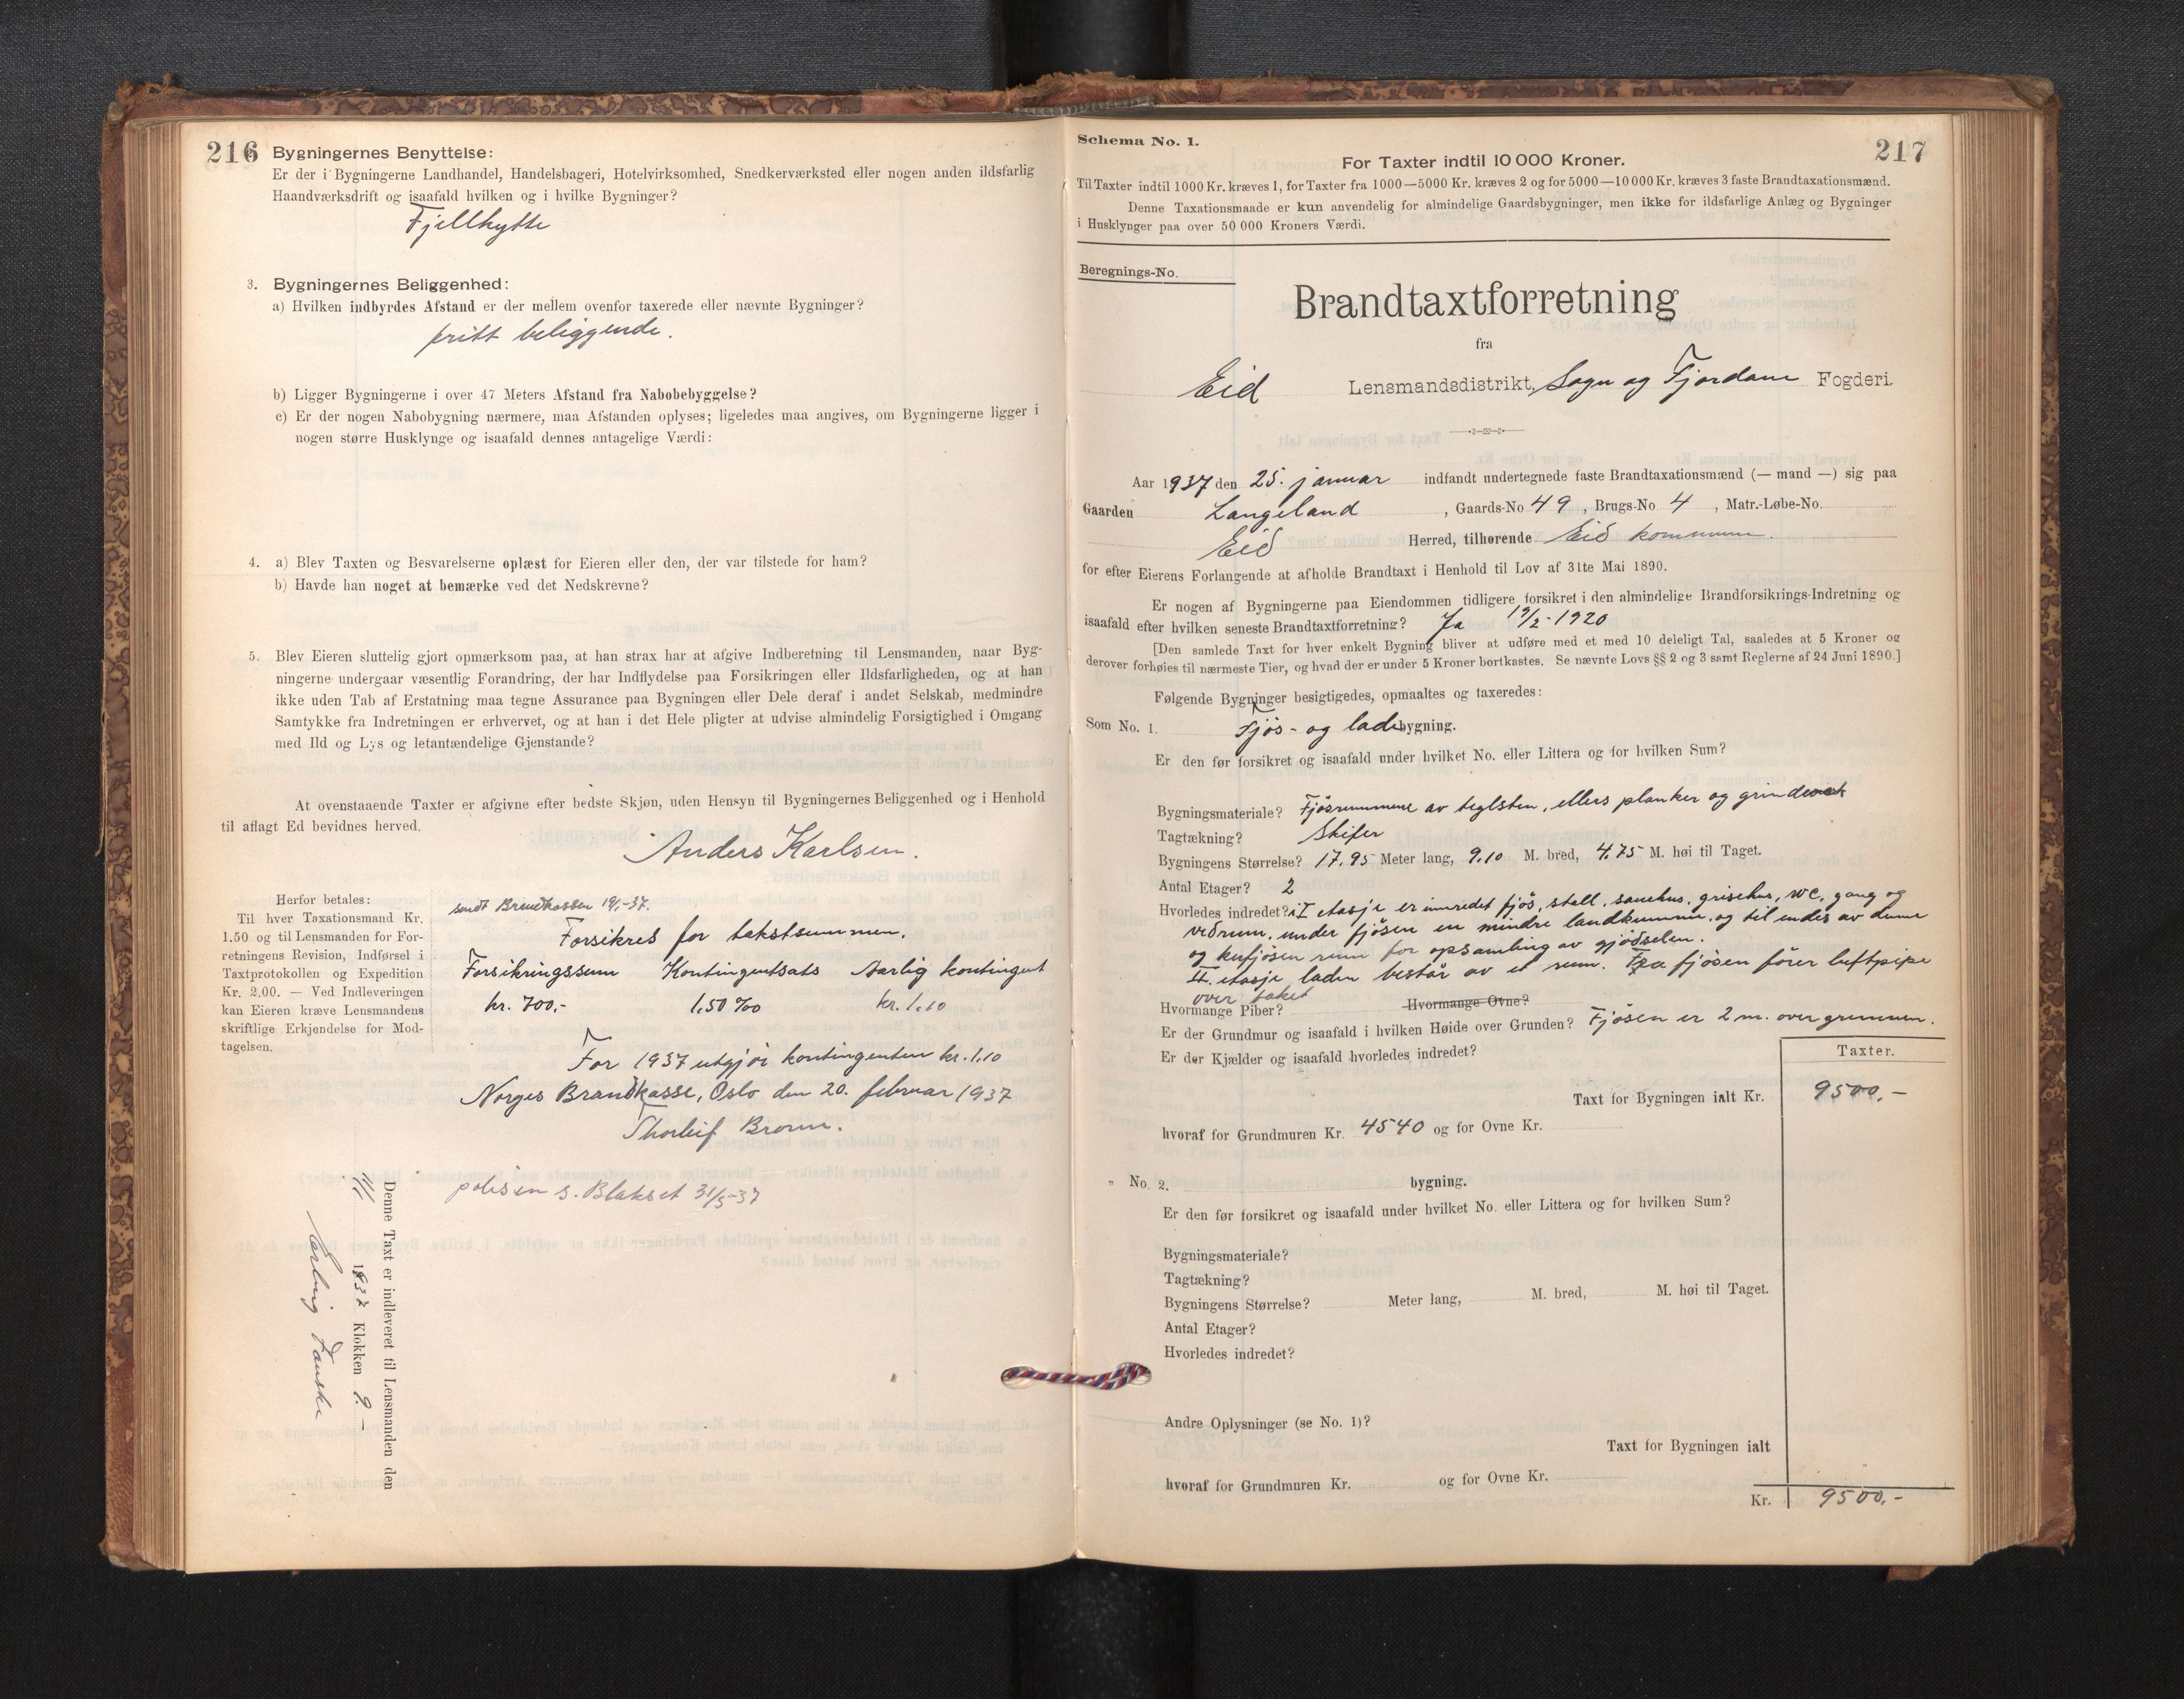 216
Bygningernes Benyttelse:
Er der i Bygningerne Landhandel, Handelsbageri, Hotelvirksomhed, Snedkerværksted eller nogen anden ildsfarlig
Haandværksdrift og isaafald hvilken og i hvilke Bygninger?
Fjellhytte
3. Bygningernes Beliggenhed:
a) Hvilken indbyrdes Afstand er der mellem ovenfor taxerede eller nævnte Bygninger?
fritt beliggende.
b) Ligger Bygningerne i over 47 Meters Afstand fra Nabobebyggelse?
c) Er der nogen Nabobygning nærmere, maa Afstanden oplyses; ligeledes maa angives, om Bygningerne ligger i
nogen større Husklynge og isaafald dennes antagelige Værdi:
4. a) Blev Taxten og Besvarelserne oplæst for Eieren eller den, der var tilstede for ham?
b) Havde han noget at bemærke ved det Nedskrevne?
5. Blev Eieren sluttelig gjort opmærksom paa, at han strax har at afgive Indberetning til Lensmanden, naar Byg-
ningerne undergaar væsentlig Forandring, der har Indflydelse paa Forsikringen eller Ildsfarligheden, og at han
ikke uden Tab af Erstatning maa tegne Assurance paa Bygningen eller Dele deraf i andet Selskab, medmindre
Samtykke fra Indretningen er erhvervet, og at han i det Hele pligter at udvise almindelig Forsigtighed i Omgang
med Ild og Lys og letantændelige Gjenstande?
At ovenstaaende Taxter er afgivne efter bedste Skjøn, uden Hensyn til Bygningernes Beliggenhed og i Henhold
til aflagt Ed bevidnes herved.
Anders Karlsen.
Herfor betales:
Til hver Taxationsmand Kr.
1.50 og til Lensmanden for For-
retningens Revision, Indførsel i
Taxtprotokollen og Expedition
Kr. 2.00. — Ved Indleveringen
kan Eieren kræve Lensmandens
skriftlige Erkjendelse for Mod-
tagelsen.
sendt Brandkassen 19/1-37.
Forsikres for takstsummen.
Forsikringssum Kontingentsats Aarlig kontingent
kr. 700,- 1,50 ‰ kr. 1,10
For 1937 utgjör kontingenten kr. 1.10
Norges Brandkasse, Oslo den 20. februar 1937
Thorleif
polisen s. Blakset 31/5-37
Denne Taxt er indleveret til Lensmanden den
1937 Klokken 9.-
217
Schema No. 1.
For Taxter indtil 10 000 Kroner.
Til Taxter indtil 1000 Kr. kræves 1, for Taxter fra 1000—5000 Kr. kræves 2 og for 5000—10 000 Kr. kræves 3 faste Brandtaxationsmænd.
Denne Taxationsmaade er kun anvendelig for almindelige Gaardsbygninger, men ikke for ildsfarlige Anlæg og Bygninger
i Husklynger paa over 50 000 Kroners Værdi.
Beregnings-No.
Brandtaxtforretning
fra
Eid Lensmandsdistrikt, Sogn og Fjordane Fogderi.
Aar 1937 den 25. januar indfandt undertegnede faste Brandtaxationsmænd (— mand —) sig paa
Gaarden Langeland , Gaards-No 49 , Brugs-No 4 , Matr.-Løbe-No.
Eid Herred, tilhørende Eid kommune.
for efter Eierens Forlangende at afholde Brandtaxt i Henhold til Lov af 31te Mai 1890.
Er nogen af Bygningerne paa Eiendommen tidligere forsikret i den almindelige Brandforsikrings-Indretning og
isaafald efter hvilken seneste Brandtaxtforretning? Ja 19/2-1920
[Den samlede Taxt for hver enkelt Bygning bliver at udføre med et med 10 deleligt Tal, saaledes at 5 Kroner og
derover forhøies til nærmeste Tier, og hvad der er under 5 Kroner bortkastes. Se nævnte Lovs §§ 2 og 3 samt Reglerne af 24 Juni 1890.]
Følgende Bygninger besigtigedes, opmaaltes og taxeredes:
Som No. 1. Fjös- og ladebygning.
Er den før forsikret og isaafald under hvilket No. eller Littera og for hvilken Sum?
Bygningsmateriale? Fjösrummene av teglsten, ellers planker og grindverk
Tagtækning? Skifer
Bygningens Størrelse? 17.95 Meter lang, 9.10 M. bred, 4.75 M. høi til Taget.
Antal Etager? 2
Hvorledes indredet? i I etasje er innredet fjös, stall, sauehus, grisehus, WC, gang og
vedrum, under fjösen en mindre landkumme, og til endes av denne
og kufjösen rum for opsamling av gjödselen.
II. etasje laden består av et rum. Fra fjösen förer luftpipe
over taket
Hvormange Piber? Hvormange Ovne?
Er der Grundmur og isaafald i hvilken Høide over Grunden? Fjösen er 2 m. over grunnen.
Er der Kjælder og isaafald hvorledes indredet?
Taxter.
Taxt for Bygningen ialt Kr. 9500.-
hvoraf for Grundmuren Kr. 4540 og for Ovne Kr.
" No. 2. bygning.
Er den før forsikret og isaafald under hvilket No. eller Littera og for hvilken Sum?
Bygningsmateriale?
Tagtækning?
Bygningens Størrelse? Meter lang, M. bred, M. høi til Taget.
Antal Etager?
Hvorledes indredet?
Andre Oplysninger (se No. 1)?
Taxt for Bygningen ialt
hvoraf for Grundmuren Kr. og for Ovne Kr.
Kr. 9500.-